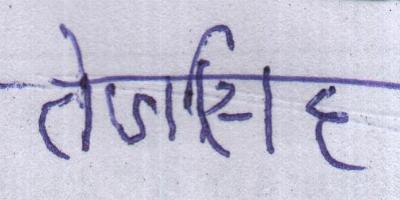 तेजसिह